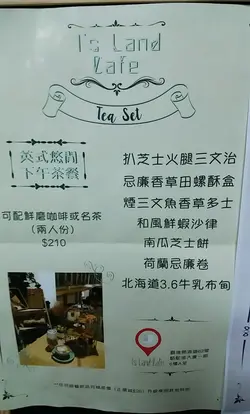 I's Land
Cafe
Tea Set
英式悠閒
下午茶餐
可配鮮磨咖啡或名茶
(兩人份)
$210
扒芝士火腿三文治
忌廉香草田螺酥盒
煙三文魚香草多士
和風鮮蝦沙律
南瓜芝士餅
荷蘭忌廉卷
北海道3.6牛乳布甸